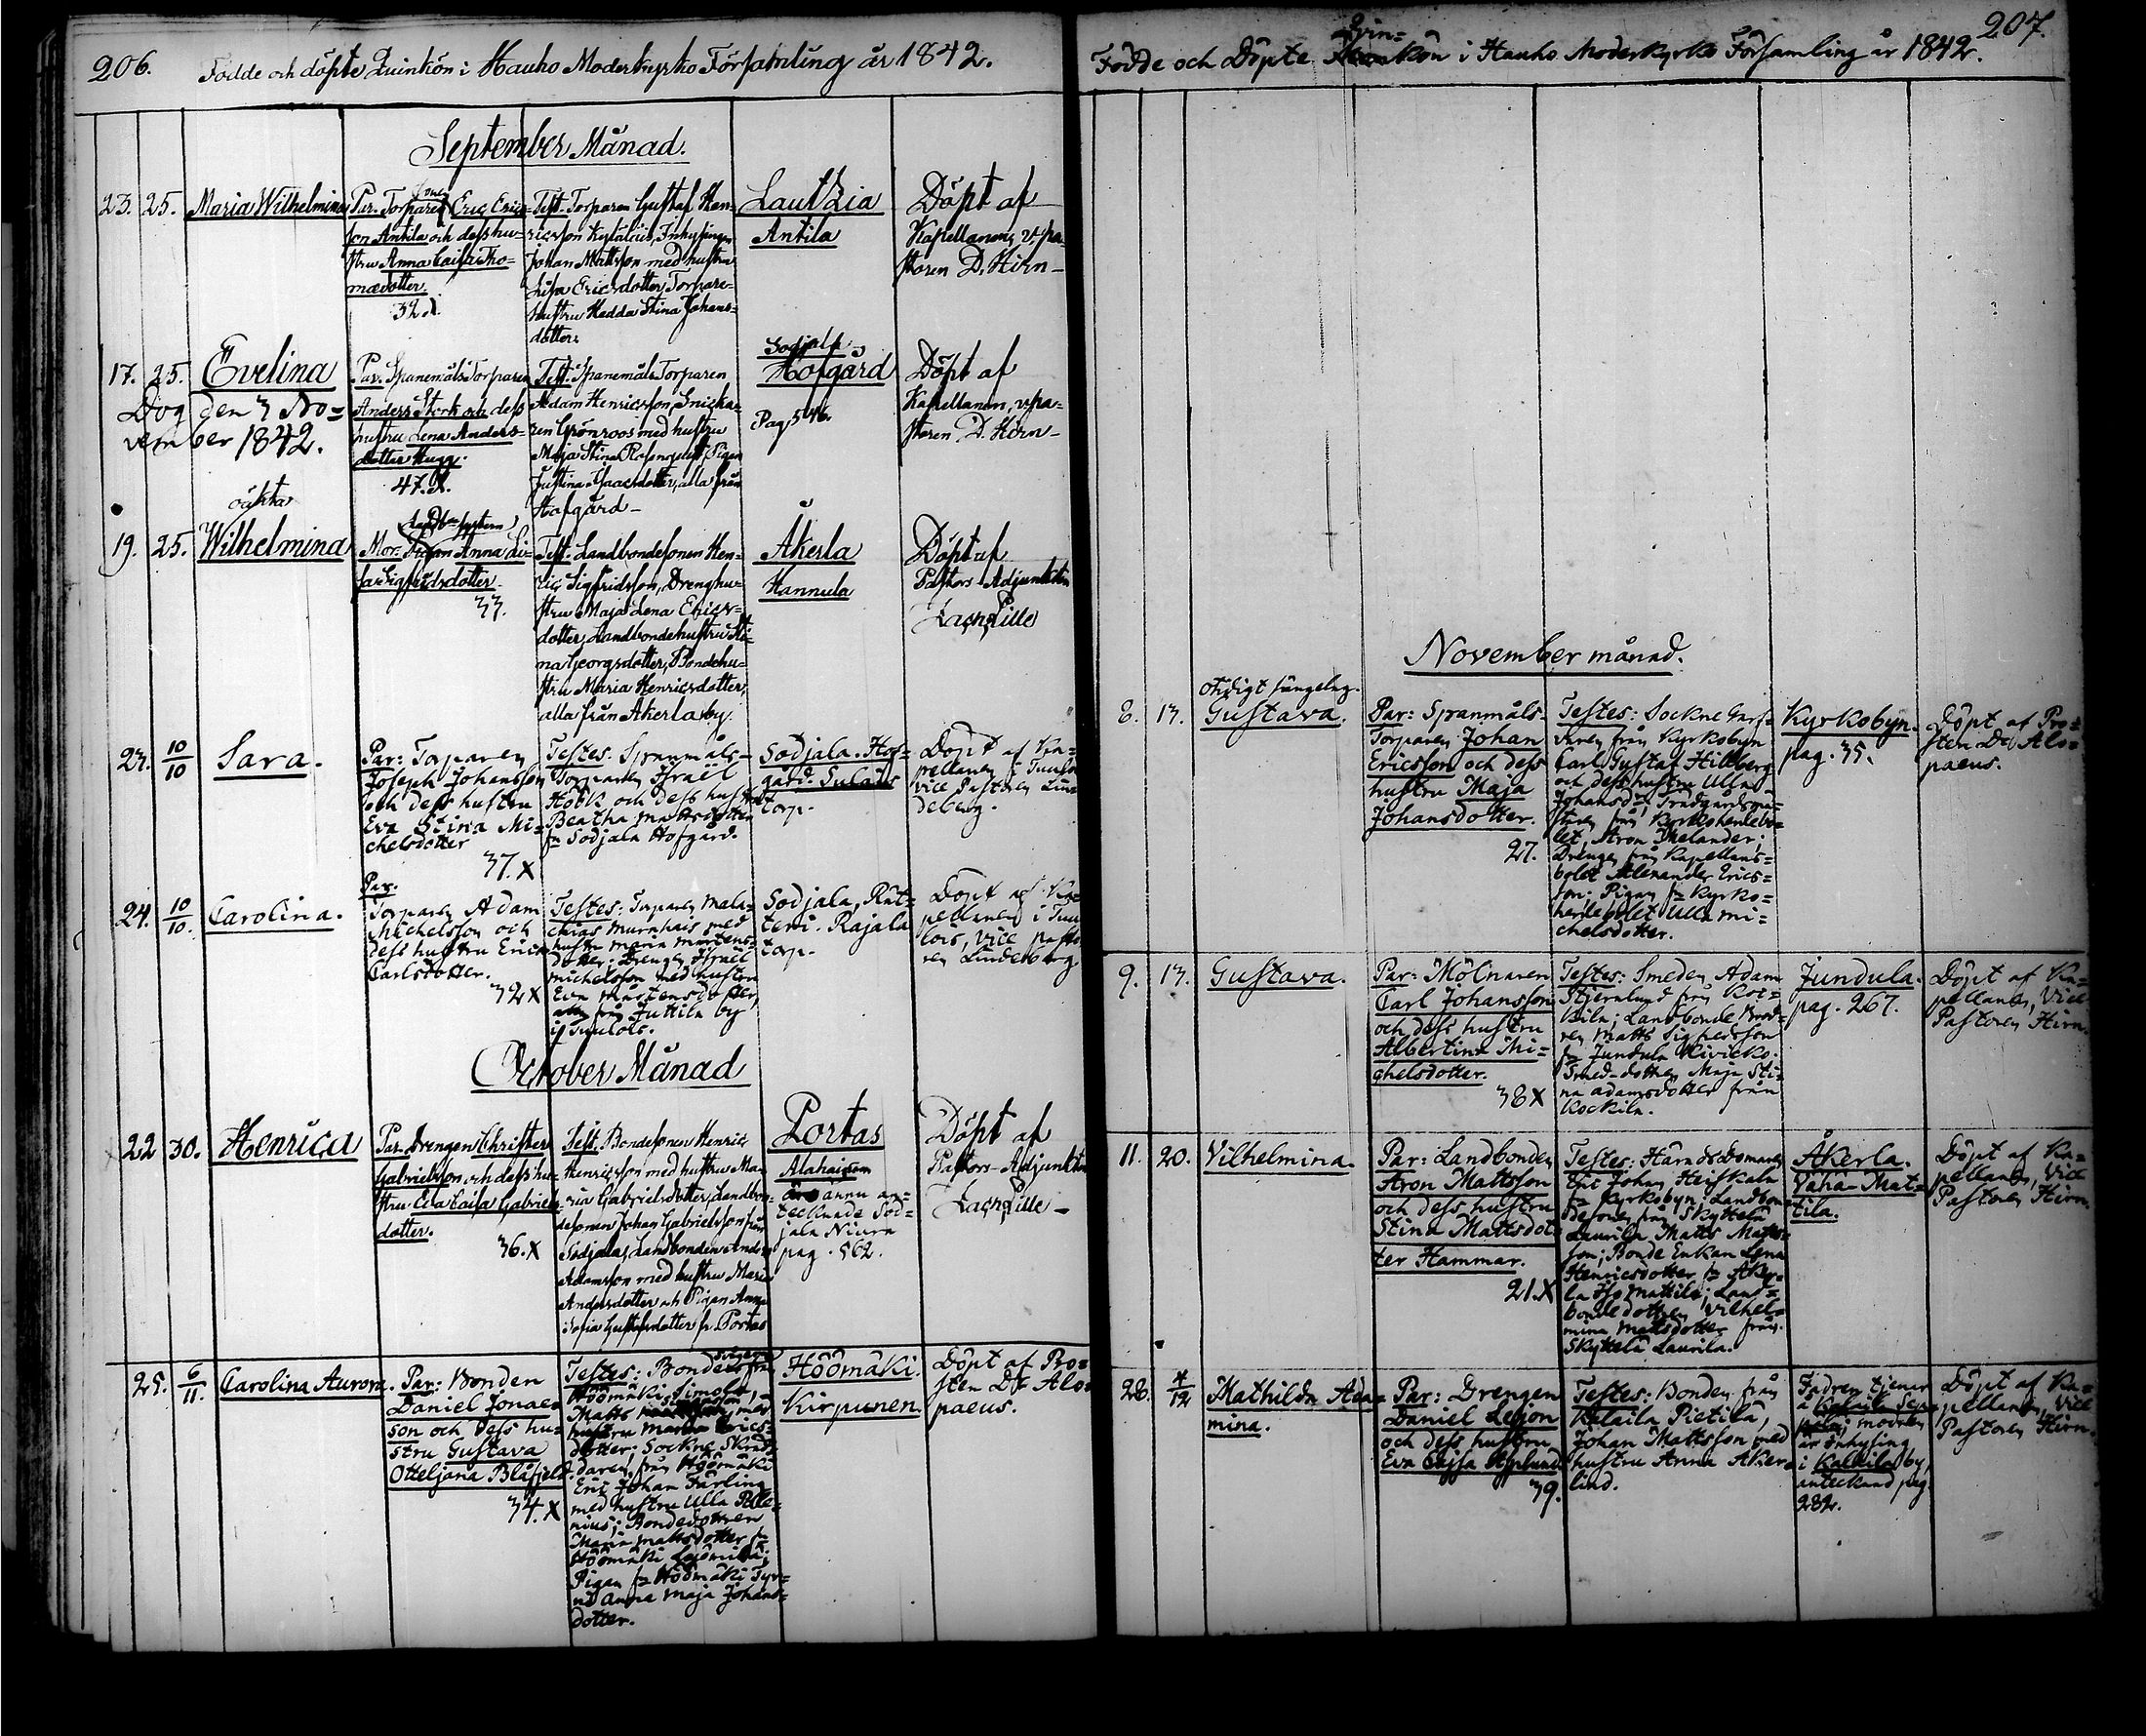 206.
Födde och döpte Quinkön i Hauho Moderkyrko Församling år 1842.
September Månad.
23. 25. Maria Wilhelmina
Par. Torparen Eric Erics-
son Antila och dess hu-
stru Anna Caisa Tho-
mædotter.
32.
Test. Torparen Gustaf Hen-
ricsson Inhysingen
Johan Mattsson med hustru
Lisa Ericsdotter, Torpare-
hustru Hedda Stina Johans-
dotter.
Lautzia
Antila
Döpt af
Kapellanen, v. pa-
storen D. Hirn-
17. 25. Evelina
Dog den 3 No-
vember 1842.
Par. Spanemåls Torparen
Anders Stork och dess
hustru Lena Anders-
dotter Hugg.
47.
Test. Spanemåls Torparen
Adam Henricsson, Snicka-
ren Grönroos med hustru
Maja Stina Rosenquist, Pigan
Justina Isaacsdotter, alla från
Hofgård-
Sodjala
Hofgård
Pag. 546.
Döpt af
Kapellanen, v. pa-
storen D. Hirn-
oäkta
19. 25. Wilhelmina
Mor. Pigan Anna Li-
sa Sigfridsdotter.
33.
Test. Landbondesonen Hen-
ric Sigfridsson, Drenghu-
stru Maja Lena Erics-
dotter, Landbondehustru Sti-
na Georgsdotter, Bondehu-
stru Maria Henricsdotter,
alla från Åkerla by.
Åkerla
Hannula
Döpt af
Pastors-Adjunkten
Zach. Lille
23. 10/10 Sara.
Par: Torparen
Joseph Johansson
och dess hustru
Eva Stina Mi-
chelsdotter
37. x
Testes. Spanmåls-
Torparen Israel
Höök och dess hustru
Beatha Mattsdotter
fr Sodjala Hofgård.
Sodjala. Hof-
gård.
torp.
Döpt af Ka-
pellanen i Tuulos
vice Pastoren Lin-
deberg.
24. 10/10. Carolina.
Par.
Torparen Adam
Michelsson och
dess hustru Erica
Carlsdotter.
32 x
Testes: Torparen Mala-
chias med
hustru Maria Mårtens-
dotter. Drengen Israel
Michelsson med hustru
Eva Mårtensdotter,
alla från Juttila by
i Tuulois.
Sodjala, Rät-
teri. Rajala
torp.
Döpt af Ka-
pellanen i Tuu-
lois, vice pasto-
ren Lindeberg
October Månad
22 30. Henrica
Par. Drengen Christer
Gabrielsson och dess hu-
stru Eva Caisa Gabriels-
dotter.
36. x
Test. Bondesonen Henric
Henricsson med hustru Ma-
ria Gabrielsdotter, Landbon-
desonen Johan Gabrielsson från
Sodjala, Landbonden Anders
Adamsson med hustru Maria
Andersdotter och Pigan Anna
Sofia Gustafsdotter fr. Portas
Portas
Alahaigom
ännu an-
tecknade Sod-
jala Niura
pag. 562.
Döpt af
Pastors-Adjunkten
Zach. Lille-
25. 6/11. Carolina Aurora.
Par: Bonden
Daniel Jonæs-
son och dess hu-
stru Gustava
Otteljana Blåfjeld.
34. x
Testes: från
Höömäki Simola,
Matts med
hustru Maria Erics-
dotter; Sockne Skräd-
daren från Höömäki
Eric Johan Färling
med hustru Ulla Polle-
nius; Bondedottren
Maria Mattsdotter fr
Höömäki
Pigan fr Höömäki Tyr-
ni Anna Maja Johans-
dotter.
Höömäki.
Kirpunen.
Döpt af Pro-
sten Dr Alo-
paeus.
207.
Födde och Döpte Qvin-kön i Hauho Moderkyrko Församling år 1842.
November månad.
8. 13. Gustava.
Par: Spanmåls-
Torparen Johan
Ericsson och dess
hustru Maja
Johansdotter.
27.
Testes: Sockne Garf-
varen från Kyrkobyn
Carl Gustaf Hillberg
och dess hustru Ulla
Johansdr; Trädgårdsmä-
staren från Kyrkoherdebo-
let, Aron Melander,
Drengen från Kapellans-
bolet Alexander Erics-
son; Pigan fr Kyrko-
herdebolet Ulla Mi-
chelsdotter.
Kyrkobyn.
pag. 35.
Döpt af Pro-
sten Dr Alo-
paeus.
9. 13. Gustava.
Par: Mölnaren
Carl Johansson
och dess hustru
Albertina Mi-
chelsdotter.
38 x
Testes: Smeden Adam
Stjernlund från Koc-
kila; Landbonde Brod-
ren Matts Sigfredsson
fr Jundula
Smed-dottren Maja Sti-
na Adamsdotter från
Kockila.
Jundula.
pag. 267.
Döpt af Ka-
pellanen, Vice
Pastoren Hirn.
11. 20. Vilhelmina.
Par: Landbonden
Aron Mattsson
och dess hustru
Stina Mattsdot-
ter Hammar.
21. x
Testes: Häradsdomaren
Eric Johan Heiskala
fr Kyrkobyn; Landbon-
desonen från Skyttelä
Laurila Matts Matts-
son; Bonde Enkan Lena
Henricsdotter fr Åker-
la Iso Mattila; Land-
bondedottren Vilhel-
mina Mattsdotter från
Skyttelä Laurila.
Åkerla.
Vähä-Mat-
tila.
Döpt af Ka-
pellanen, Vice
Pastoren Hirn.
28. 4/12 Mathilda Ada-
mina.
Par: Drengen
Daniel Lejon
och dess hustru
Eva Cajsa Asplund
39.
Testes: Bonden från
Kalaila Pietilä,
Johan Mattsson med
hustru Anna Åker-
lind.
Fadren tjenar
å Kalaila Sep-
pälä; modren
är inhysing
i Kalaila by,
antecknad pag.
282.
Döpt af Ka-
pellanen, Vice
Pastoren Hirn.